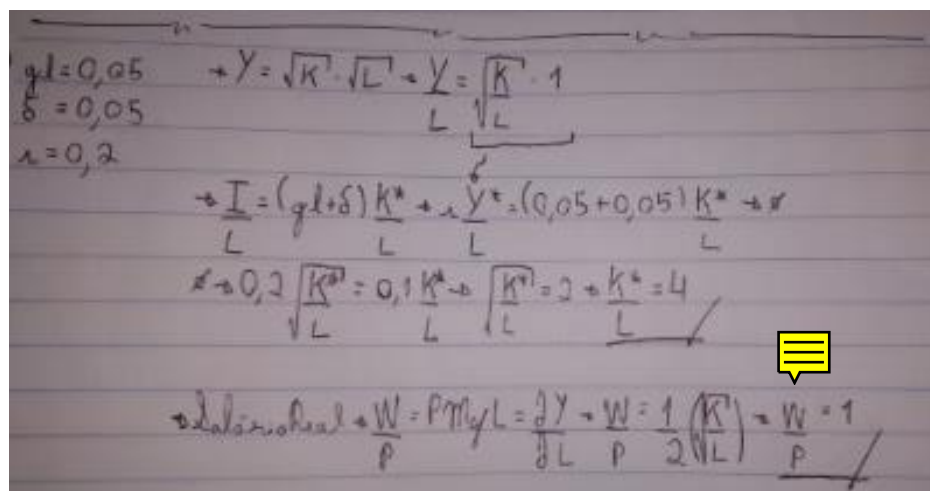 gl = 0,05 → Y = √K · √L → Y/L = √(K/L) · 1
δ = 0,05
s = 0,2
→ I/L = (gl + δ) K*/L → s Y*/L = (0,05 + 0,05) K*/L →
→ 0,2 √(K*/L) = 0,1 K*/L → √(K*/L) = 2 → K*/L = 4
→ Salário Real → W/P = PMgL = ∂Y/∂L → W/P = 1/2 (√(K/L)) → W/P = 1